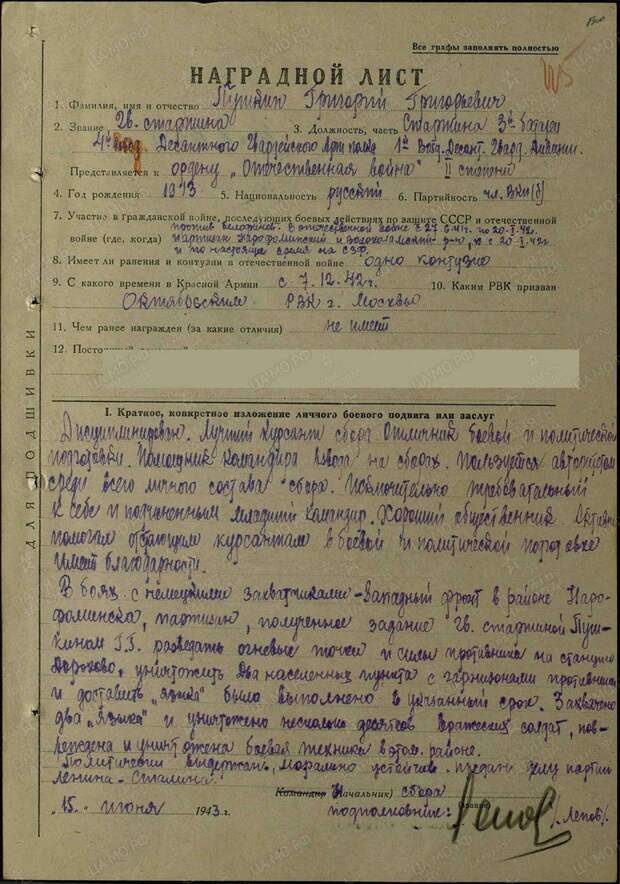 Все графы заполнять полностью
НАГРАДНОЙ ЛИСТ
1. Фамилия, имя и отчество Пушкин Григорий Григорьевич
2. Звание Гв. старшина 3. Должность, часть Старшина 3й батареи
4й Возд. Десантного Гвардейского Арт полка 1й Возд. Десант. Гвард. Дивизии.
Представляется к ордену „Отечественная война" II степени
4. Год рождения 1913 5. Национальность русский 6. Партийность чл. ВКП(б)
7. Участие в гражданской войне, последующих боевых действиях по защите СССР и отечественной
против белофинов. В отечественной войне с 27.6.41г. по 20-I-42г.
войне (где, когда) партизан Нарофоминский и Волоколамский р-н, с 20-I-42г
и по настоящее время на СЗФ.
8. Имеет ли ранения и контузии в отечественной войне одно контузию
9. С какого времени в Красной Армии с 7.12.42г. 10. Каким РВК призван
Октябрьским РВК г. Москвы
11. Чем ранее награжден (за какие отличия) не имеет
12.
I. Краткое, конкретное изложение личного боевого подвига или заслуг
Дисциплинирован. Лучший курсант сбора. Отличник боевой и политической
подготовки. Помощник командира взвода на сборах. Пользуется авторитетом
среди всего личного состава сбора. Исключительно требовательный
к себе и подчиненным младший командир. Хороший общественник. Активно
помогал отстающим курсантам в боевой и политической подготовке
Имеет благодарности.
В боях с немецкими захватчиками – Западный фронт в районе Наро-
фоминска, партизан, полученное задание гв. старшиной Пуш-
киным Г.Г. разведать огневые точки и силы противника на станции
Дорохово, уничтожить два населенных пункта с гарнизонами противника
и доставить „языка" было выполнено в указанный срок. Захвачено
два „языка" и уничтожено несколько десятков вражеских солдат, пов-
реждена и уничтожена боевая техника в этом районе.
Политически выдержан, морально устойчив. предан делу партии
Ленина – Сталина.
Командир (Начальник) сбора
„15" июня 1943 г. подполковник: /Лепов/
ДЛЯ ПОДШИВКИ
ЦАМО.РФ